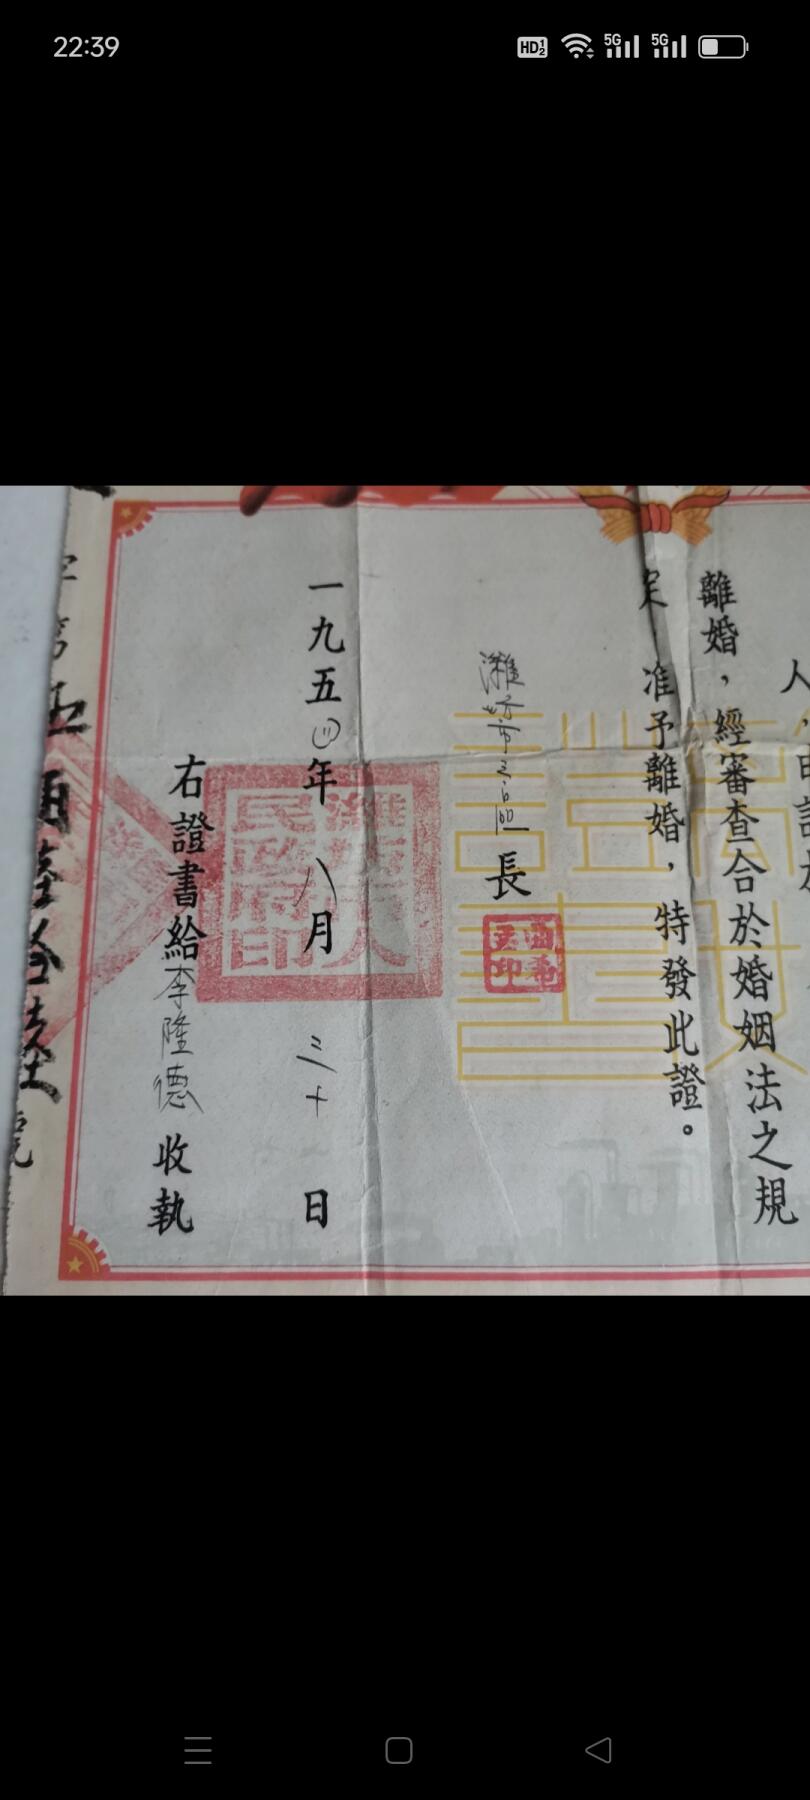 22:39
HD 1 2
5G
5G
人，申請
離婚，經審查合於婚姻法之規
定 准予離婚，特發此證。
濰坊市 區長
一九五四年八月三十日
濰坊市人
民政府印
右證書給李隆德收執
字第 號